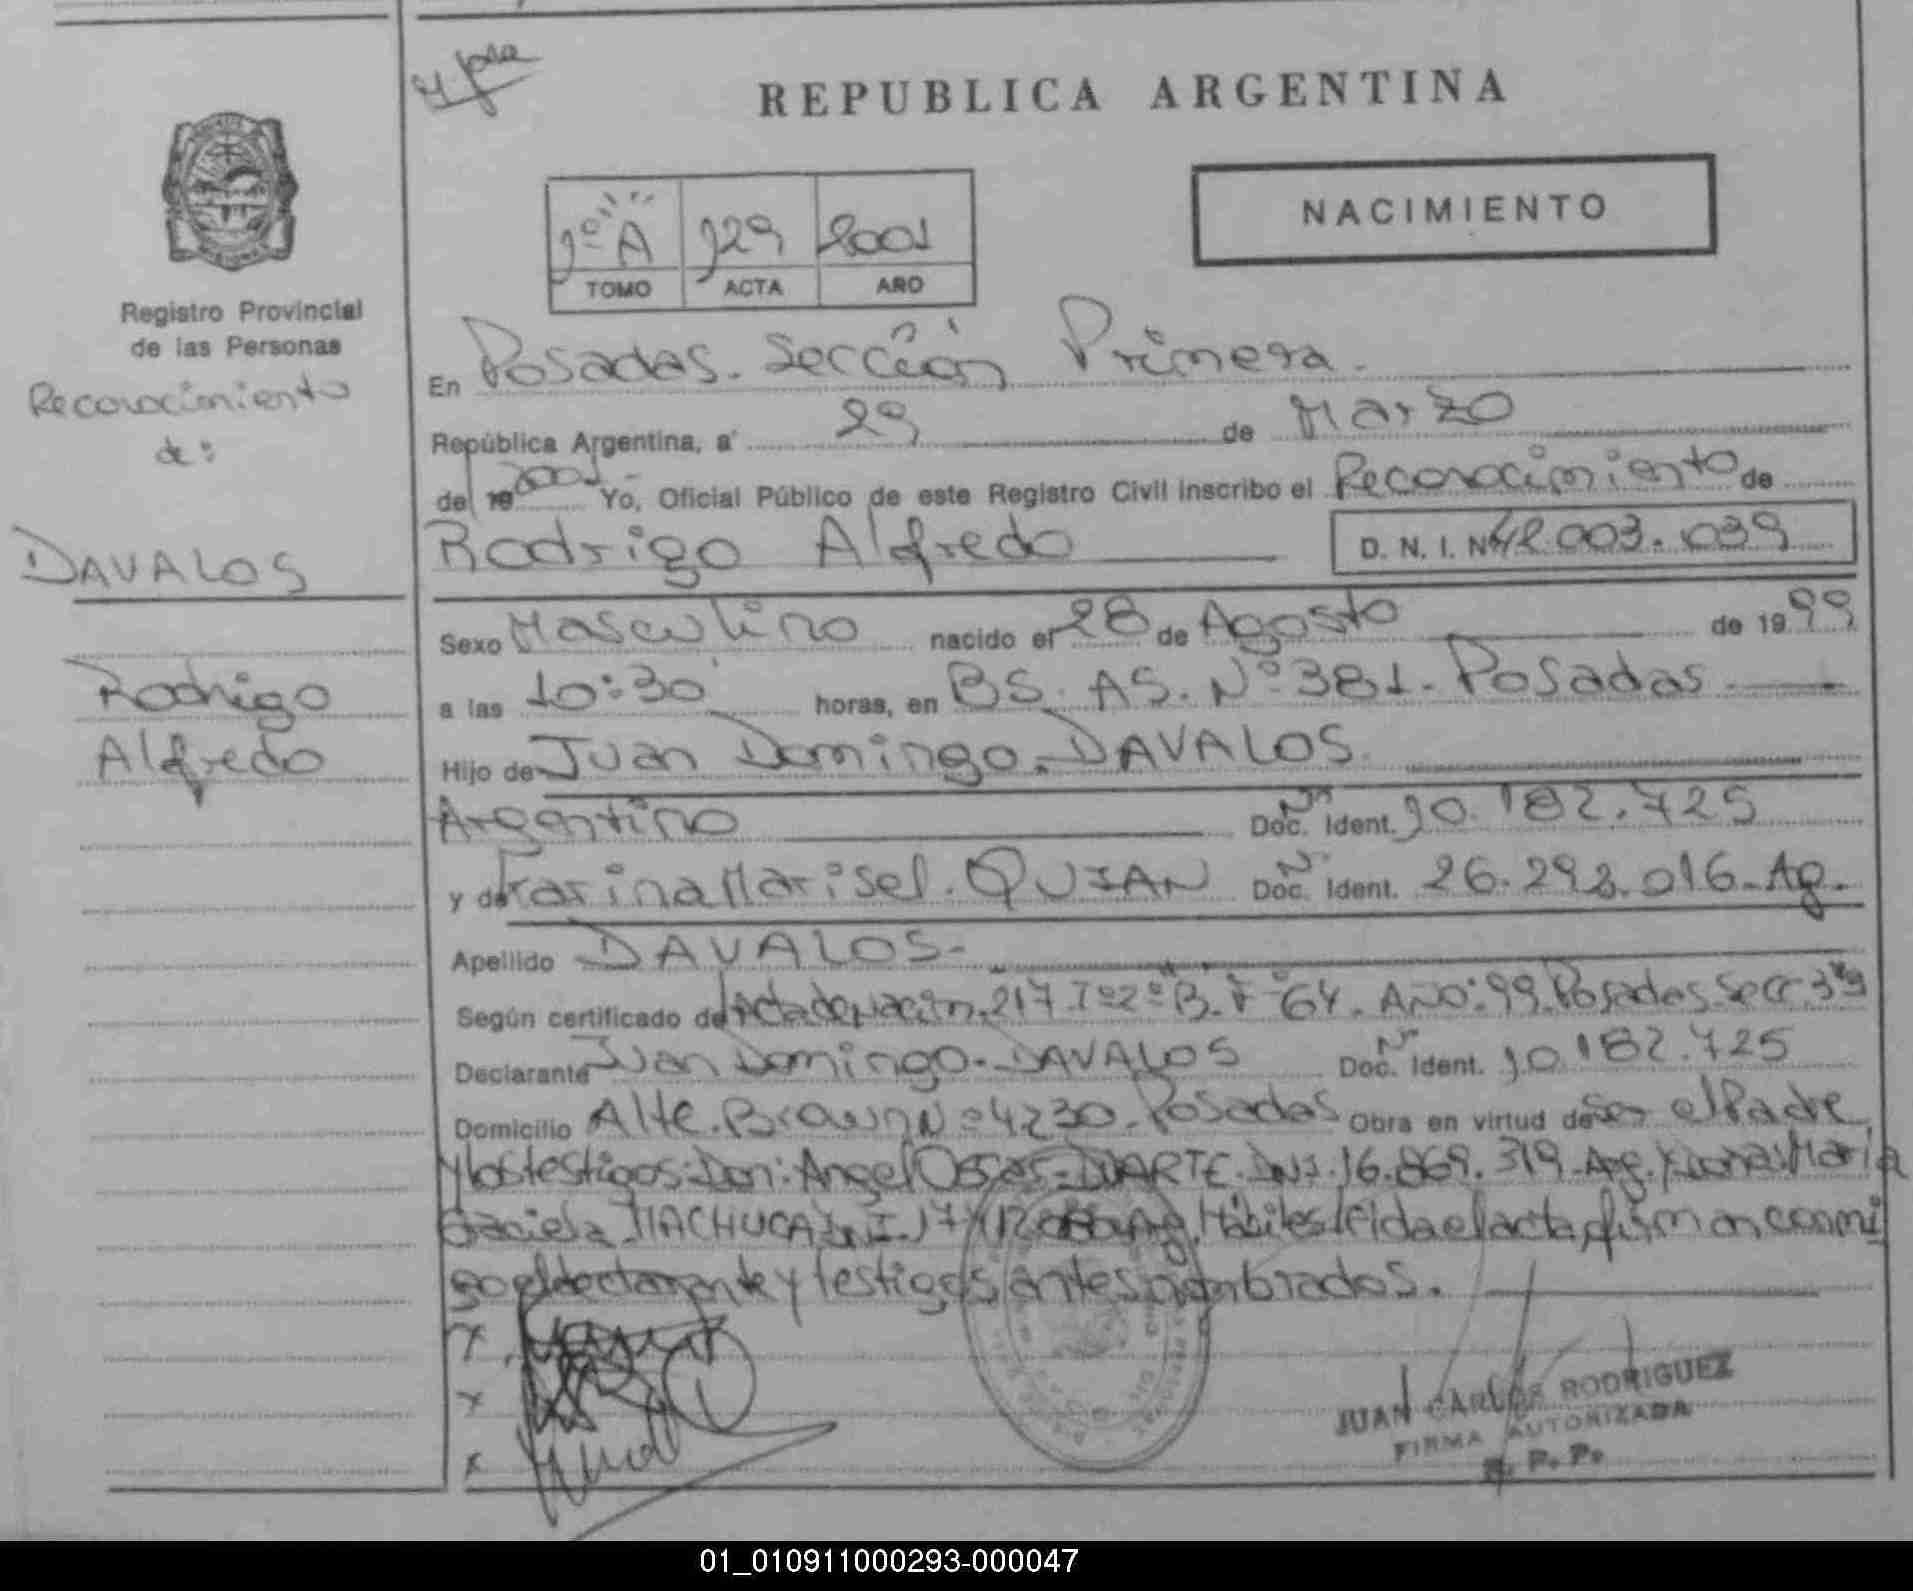 REPUBLICA ARGENTINA
1º A 129 2001
TOMO ACTA AÑO
NACIMIENTO
Registro Provincial
de las Personas
Reconocimiento
de:
DAVALOS
Rodrigo
Alfredo
En Posadas. Sección Primera.
República Argentina, a 29 de Marzo
de 19 2001 Yo, Oficial Público de este Registro Civil inscribo el Reconocimiento de
Rodrigo Alfredo D. N. I. Nº 42.003.039
Sexo Masculino nacido el 28 de Agosto de 1999
a las 10:30 horas, en BS. AS. Nº 381. Posadas
Hijo de Juan Domingo. DAVALOS.
Argentino Doc. Ident. Nº 10.182.725
y de Karina Marisel. QUIAN Doc. Ident. Nº 26.292.016. Ag.
Apellido DAVALOS.
Según certificado de Acta de nacim. 217. Tº 2º B. Fº 64. AÑO: 99. Posadas Secc 3ra
Declarante Juan Domingo. DAVALOS Doc. Ident. Nº 10.182.725
Domicilio Alte. Brown Nº 4230. Posadas Obra en virtud de Ser el Padre
y los testigos: Don: Angel Oscar. DUARTE. DNI. 16.869.319. Arg. y doña: María
Graciela MACHUCA Hábiles. Leída el acta, firman conmi
go el declarante y testigos antes nombrados.
x
x
x
JUAN CARLOS RODRIGUEZ
FIRMA AUTORIZADA
R. P. P.
01_010911000293-000047